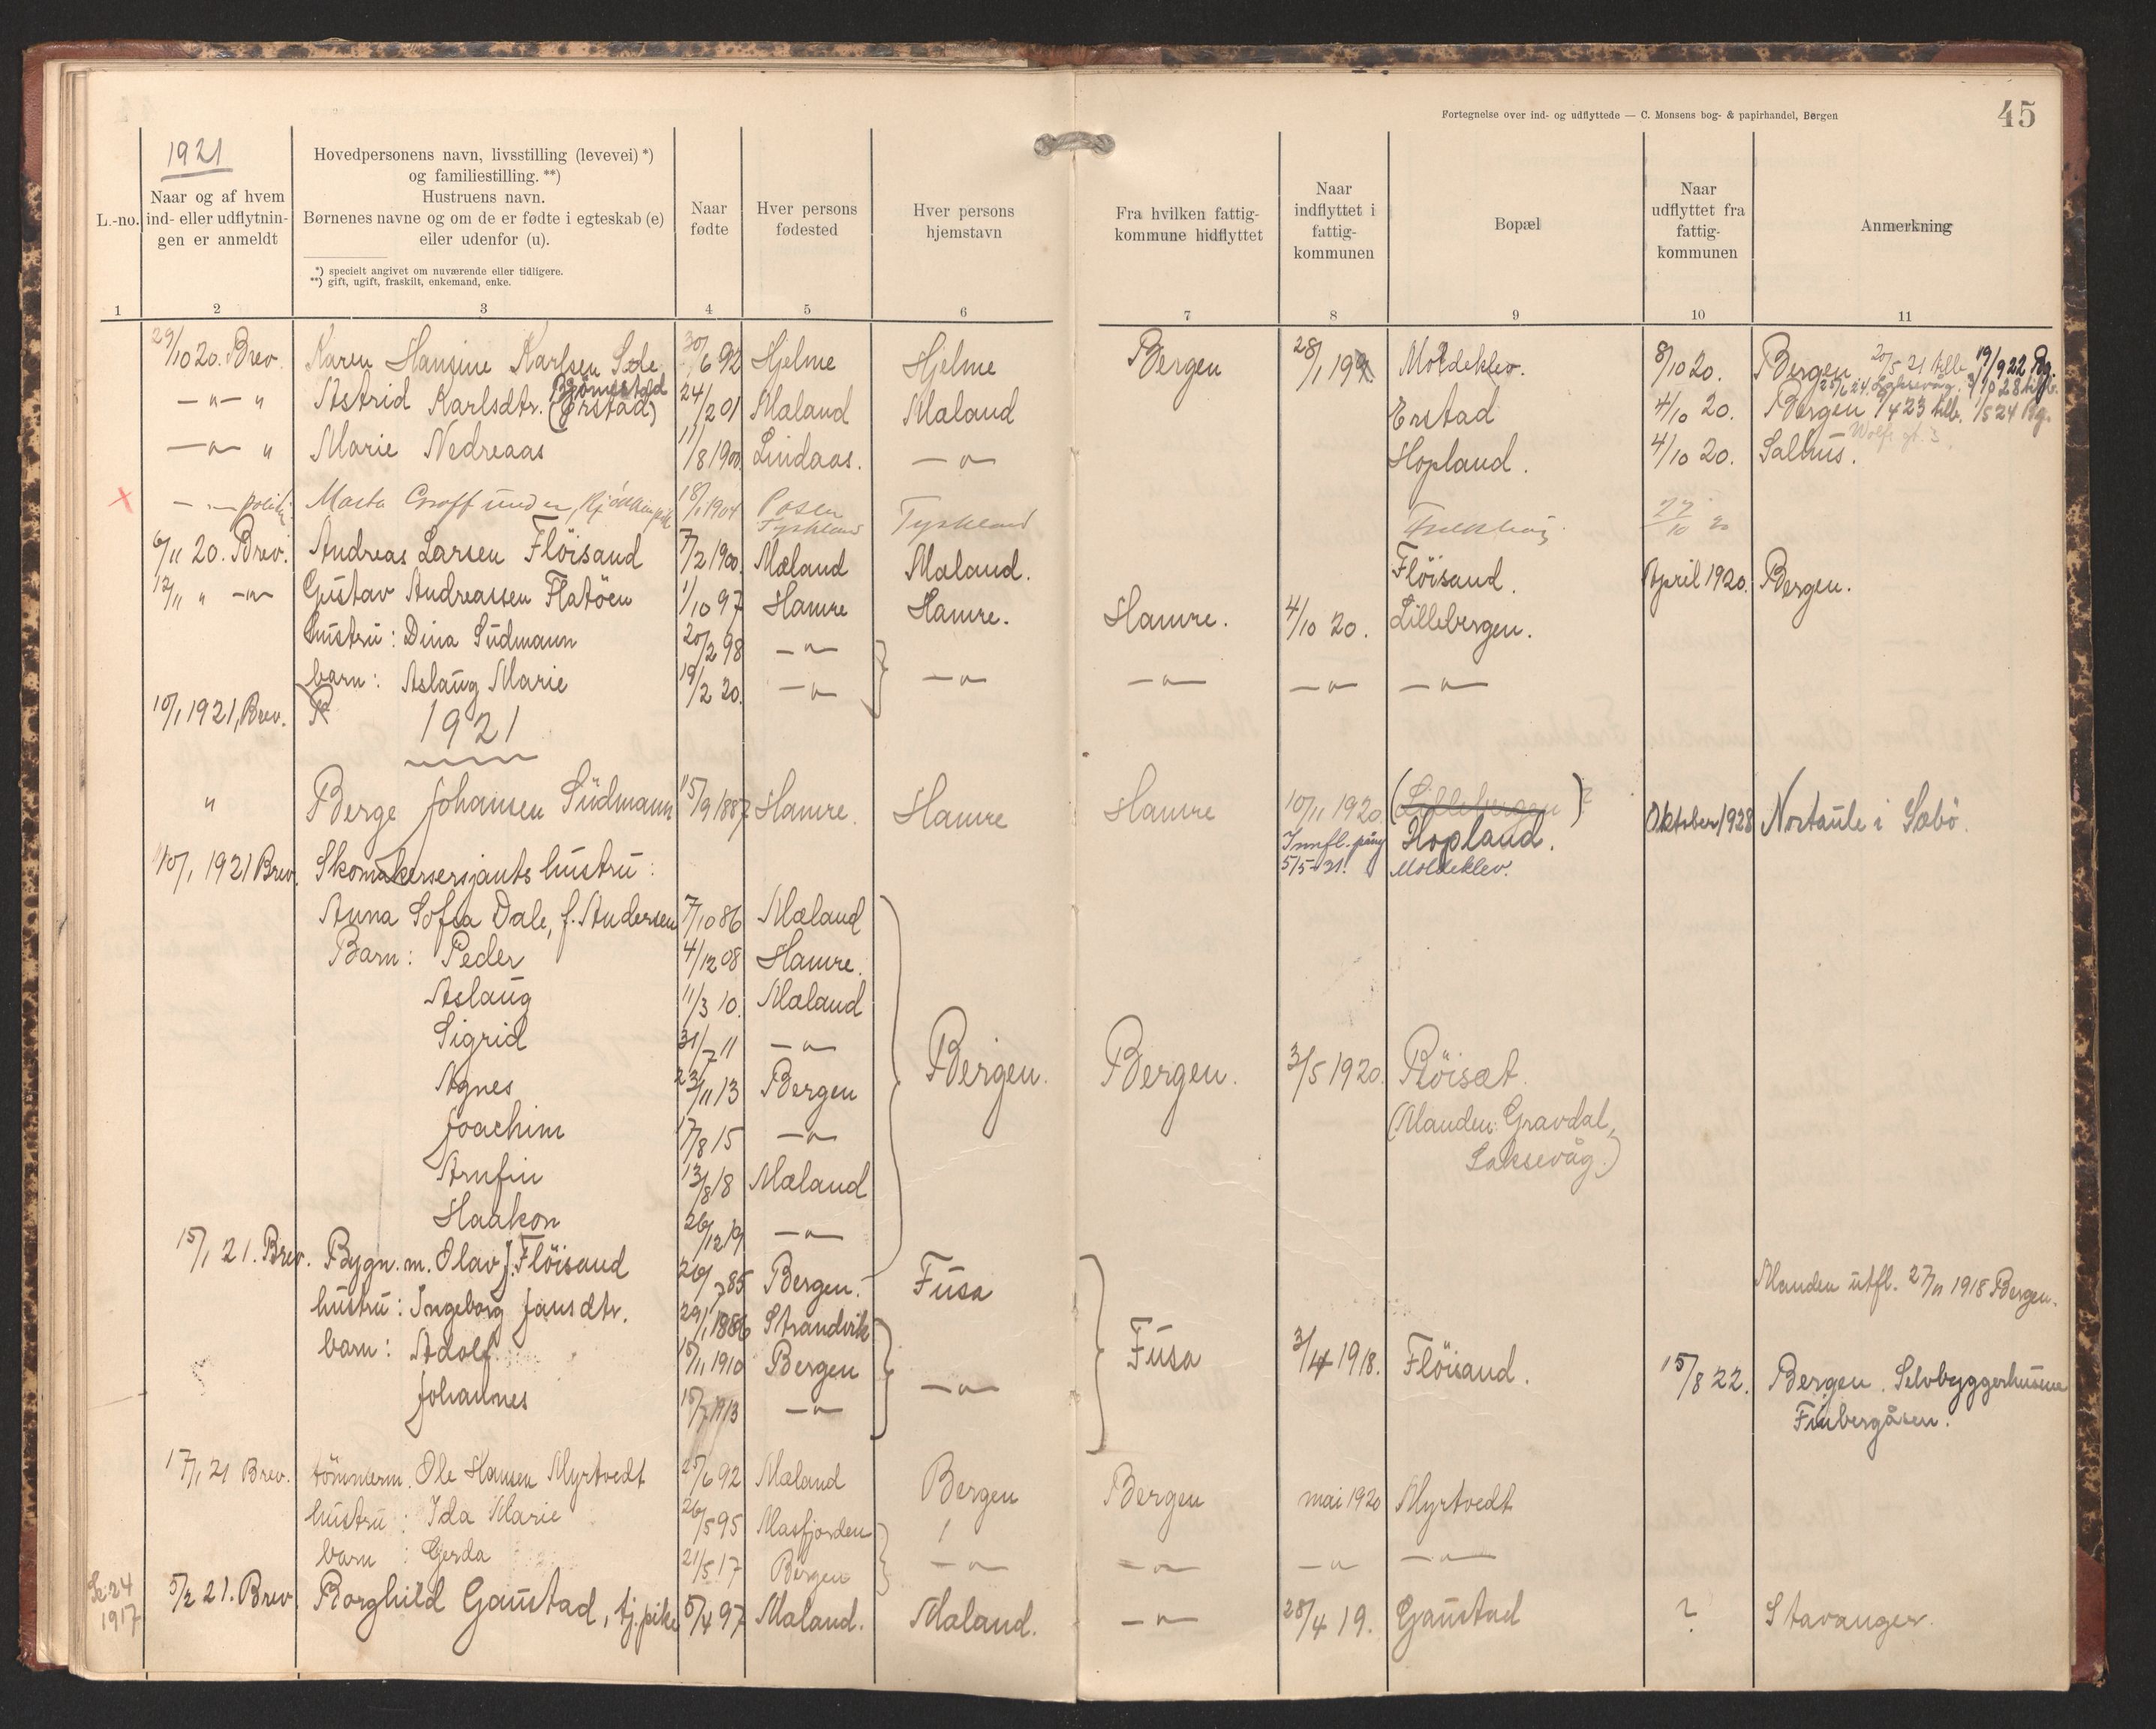 Fortegnelse over ind- og udflyttede — C. Monsens bog- & papirhandel, Bergen
45
1921
L.-no.
Naar og af hvem ind- eller udflytnin-gen er anmeldt
Hovedpersonens navn, livsstilling (levevei) *) og familiestilling. **)
Hustruens navn.
Børnenes navne og om de er fødte i egteskab (e) eller udenfor (u).
*) specielt angivet om nuværende eller tidligere.
**) gift, ugift, fraskilt, enkemand, enke.
Naar fødte
Hver persons fødested
Hver persons hjemstavn
Fra hvilken fattig-kommune hidflyttet
Naar indflyttet i fattig-kommunen
Bopæl
Naar udflyttet fra fattig-kommunen
Anmerkning
1 2 3 4 5 6 7 8 9 10 11
29/10 20. Brev. Karen Hansine Karlsen 30/6 92 Hjelme Hjelme Bergen 28/1 19 Moldeklev. 8/10 20. Bergen 20/5 21 tilb. 19/9 22 Bg.
25/6 24. Laksevåg. 3/10 28 tilb.
— " — " Astrid Karlsdtr. (Erstad) Bjørnestad 24/2 01 Mæland Mæland Erstad 4/10 20. Bergen /4 23 tilb. 1/5 24 Bg.
— " — " Marie Nedreaas 11/8 1900. Lindaas. — " — Hopland. 4/10 20. Salhus.
— " — politi Marta 18/1 1904 Posen Tyskland Tyskland Frekhaug 27/10 20
6/11 20. Brev. Andreas Larsen Flöisand 7/2 1900. Mæland Mæland. Flöisand. April 1920. Bergen.
12/11 " — " — Gustav Andreassen Flatöen 1/10 97 Hamre Hamre. Hamre. 4/10 20. Lillebergen.
hustru: Dina Südmann 20/2 98 — " —
barn: Aslaug Marie 19/2 20. — " — — " — — " — — " — — " —
10/1 1921, Brev.
1921
" Berge Johansen Südmann 15/9 1887 Hamre. Hamre Hamre 10/11 1920. (Lillebergen)? Oktober 1928 Nortaule i Sæbö.
Innfl. påny Hopland.
5/5-21. Moldeklev.
10/1 1921 Brev. Skomakersersjants hustru:
Anna Sofia Dale, f. Andersen 7/10 86 Mæland
Barn: Peder 4/12 08 Hamre.
Aslaug 11/3 10. Mæland
Sigrid 31/7 11 — " — Bergen. Bergen. 3/5 1920. Röisæt.
Agnes 23/11 13 Bergen
Joachim 17/8 15 — " — (Manden Gravdal,
Arnfin 13/8 18 Mæland Laksevåg.)
Haakon 26/12 19 — " —
15/1 21. Brev. Bygn. m. Olav J. Flöisand 26/7 85 Bergen. Fusa Manden utfl. 27/11 1918 Bergen.
hustru: Ingeborg Jansdtr. 29/1 1886 Strandvik
barn: Adolf. 15/11 1910 Bergen Fusa 3/4 1918. Flöisand. 15/8 22. Bergen. Selvbyggerhusene
Johannes 15/7 1913 — " — — " — Finbergåsen.
17/1 21 Brev. tömmerm. Ole Hansen Myrtvedt 25/6 92 Mæland Bergen Bergen mai 1920 Myrtvedt
hustru: Ida Marie 26/5 95 Masfjorden
barn: Gerda 21/5 17 Bergen — " — — " — — " — — " —
24
1917 5/2 21. Brev. Borghild Gaustad, tj.pike 5/4 97 Mæland. Mæland. — " — 28/4 19. Gaustad ? Stavanger.